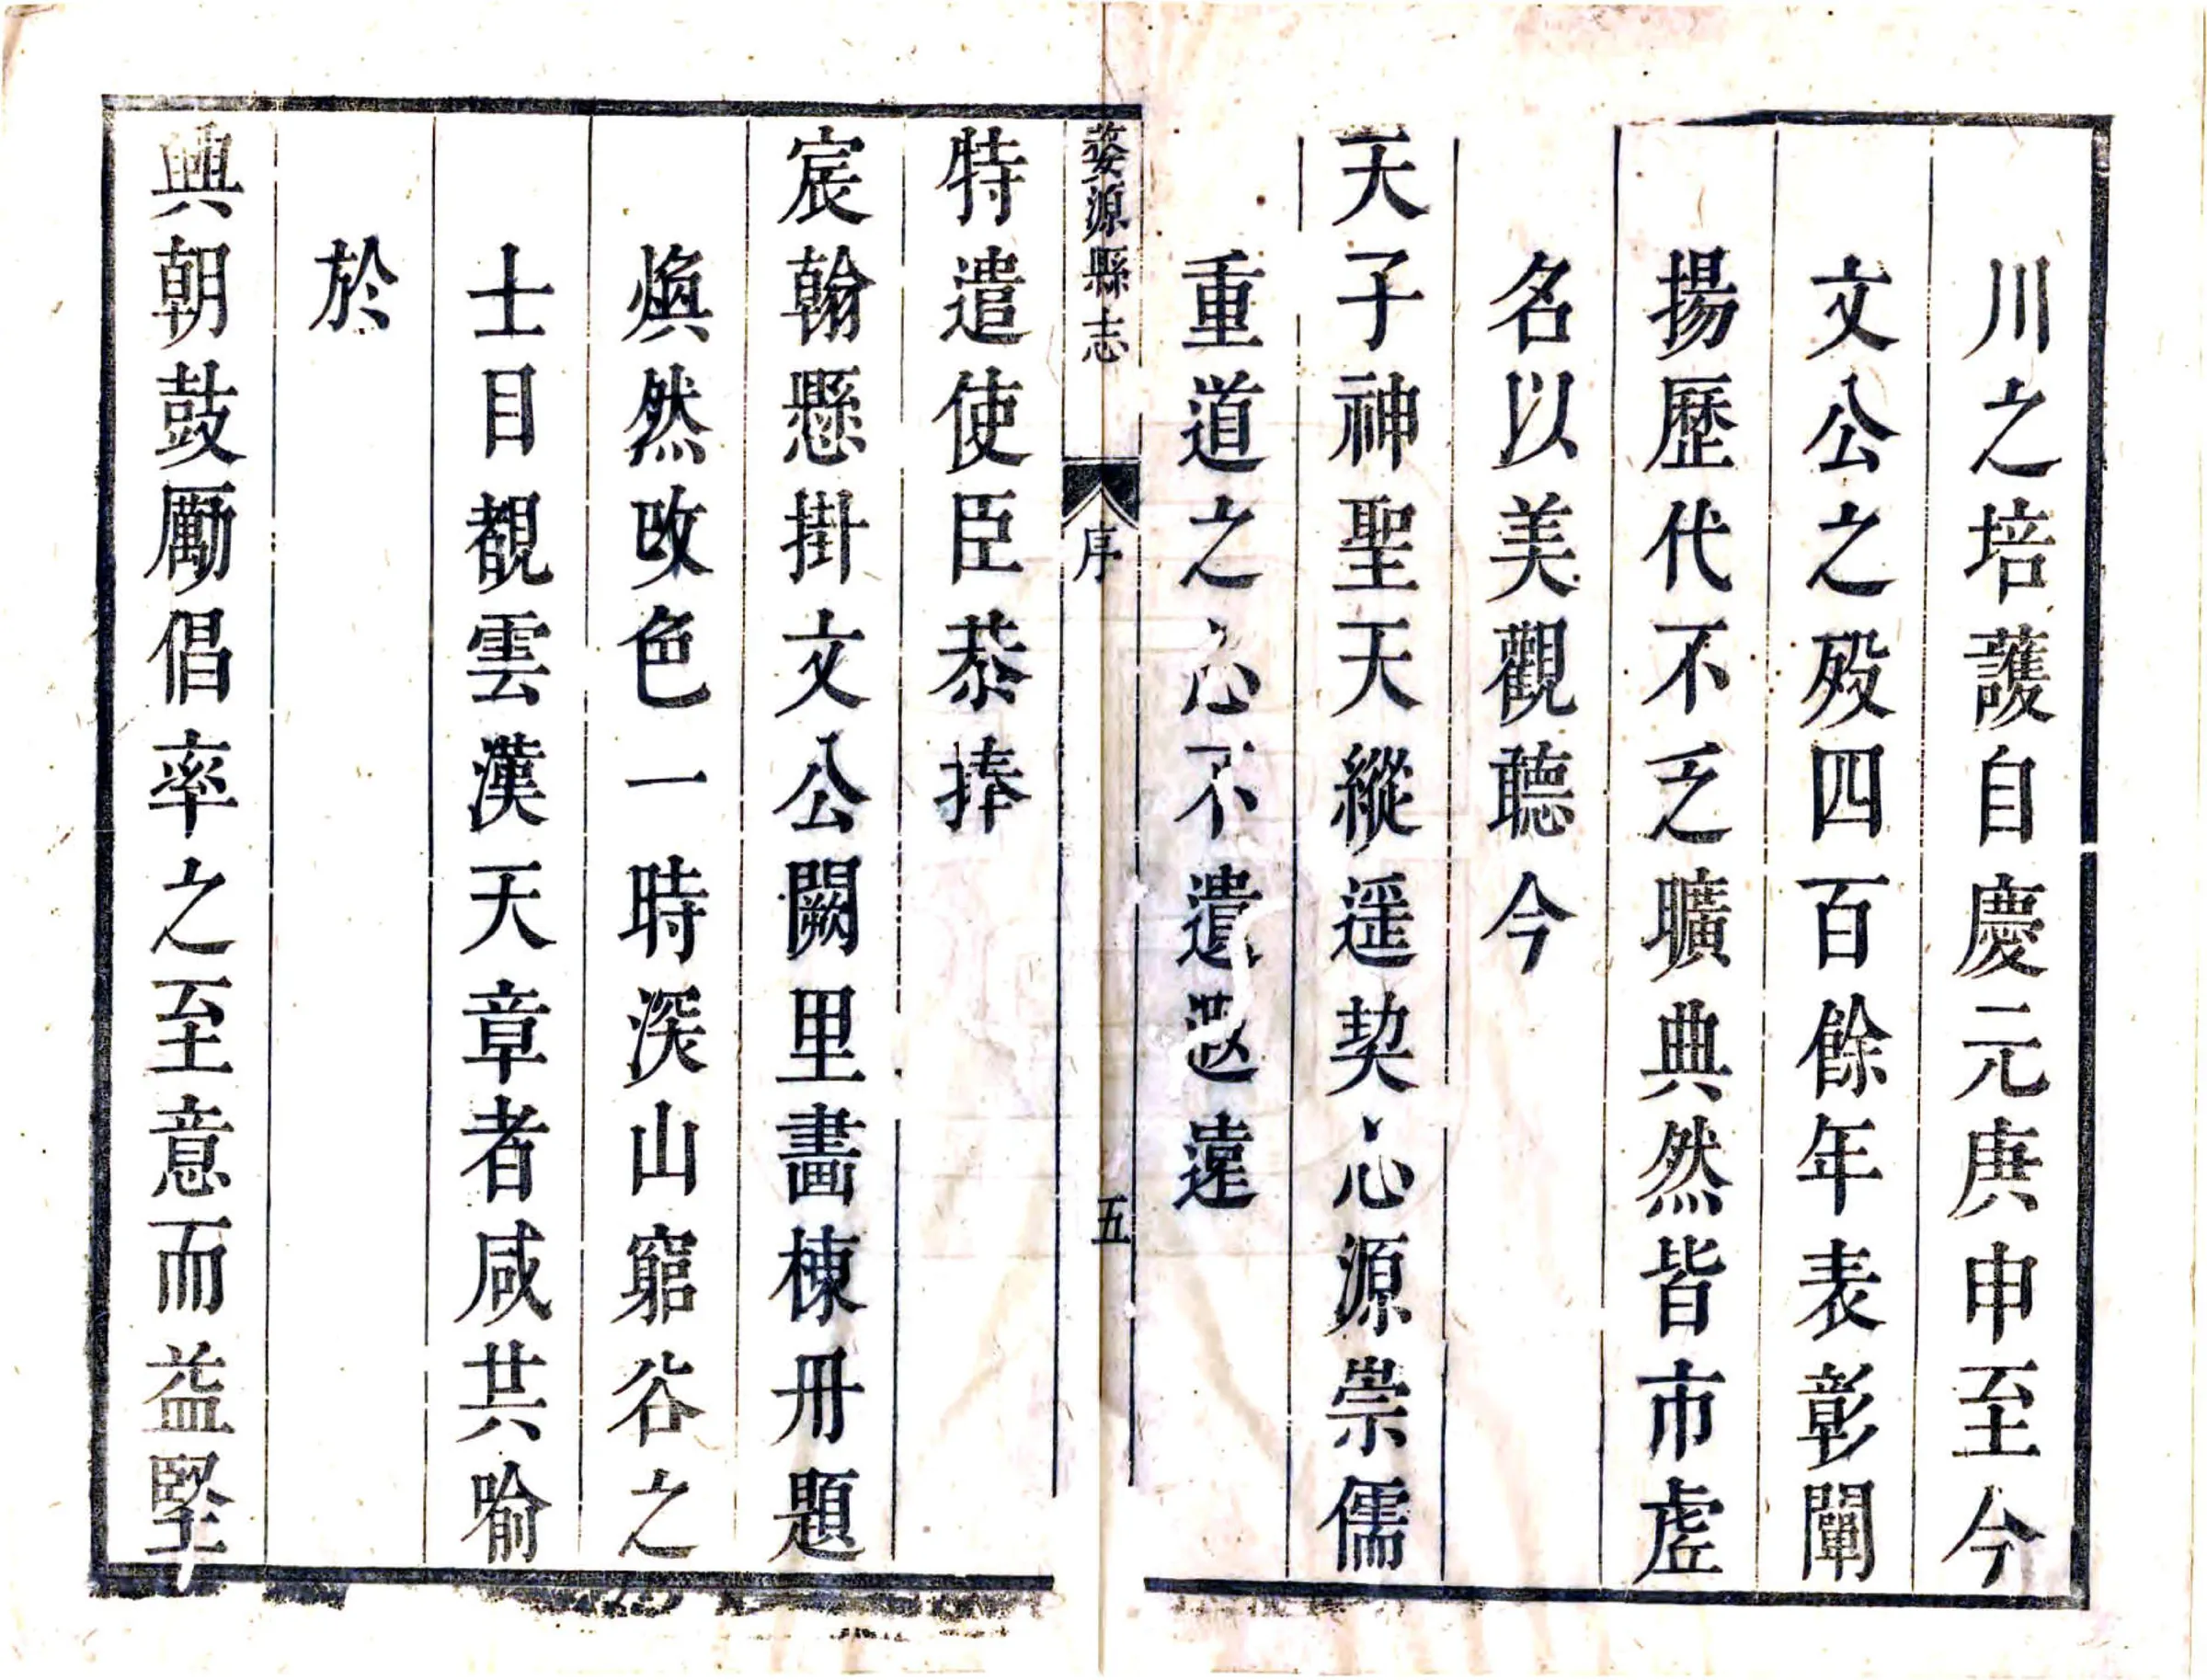 川之培護自慶元庚申至今
文公之殁四百餘年表彰闡
揚歷代不乏曠典然皆市虛
名以美觀聽今
天子神聖天縱遥契心源崇儒
重道之心不遺遐遠
婺源縣志
序
五
特遣使臣恭捧
宸翰懸掛文公闕里畫棟冊題
煥然改色一時深山窮谷之
士目覩雲漢天章者咸共喻
於
興朝鼓勵倡率之至意而益堅